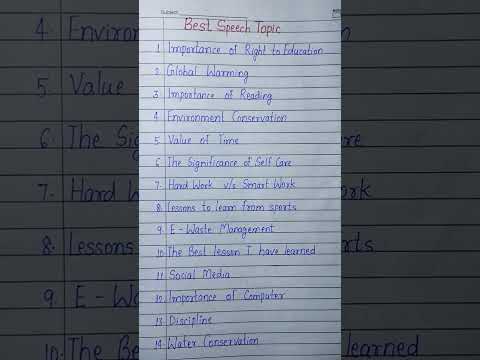 Best Speech Topic
1. Importance of Right to Education
2. Global Warming
3. Importance of Reading
4. Environment Conservation
5. Value of Time
6. The Significance of Self Care
7. Hard Work v/s Smart Work
8. Lessons to learn from sports
9. E-Waste Management
10. The Best lesson I have learned
11. Social Media
12. Importance of Computer
13. Discipline
14. Water Conservation
4. Environ
5. Value
6. The Sig
re
7. Hard W
rk
8. Lessons
rts
9. E-Wa
10. The Bes
learned